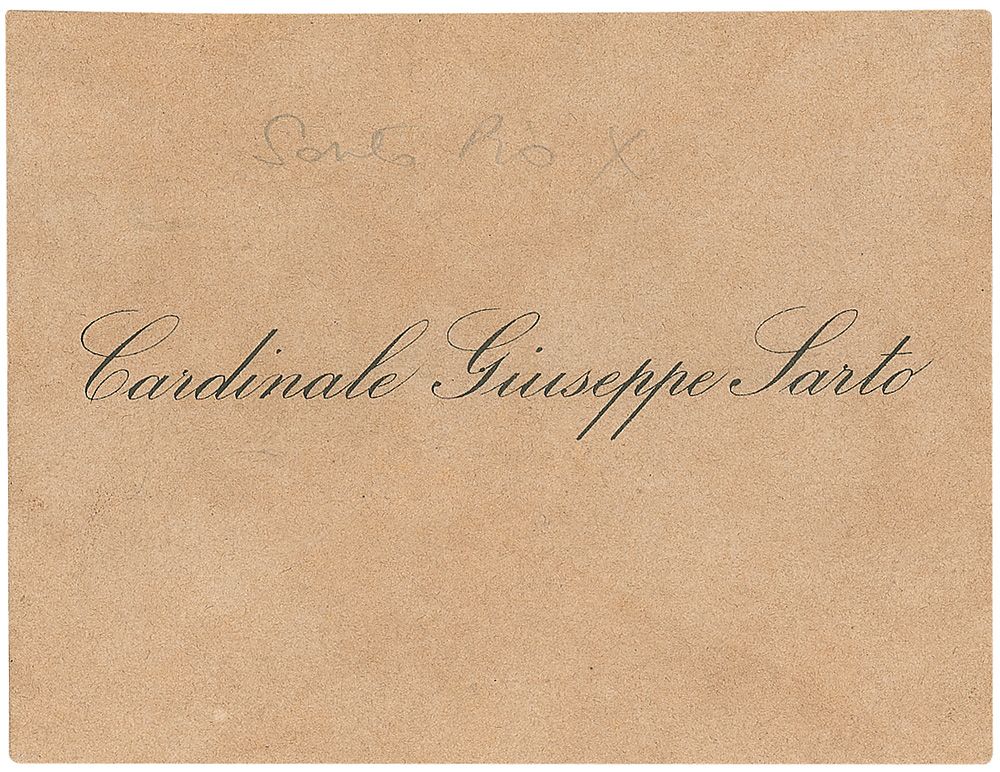 Santo Pio X
Cardinale Giuseppe Sarto